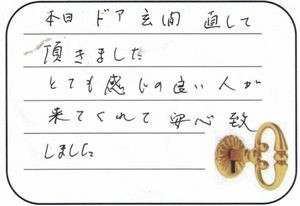 本日 ドア 玄関 直して
頂きました
とても感じの良い人が
来てくれて 安心 致
しました